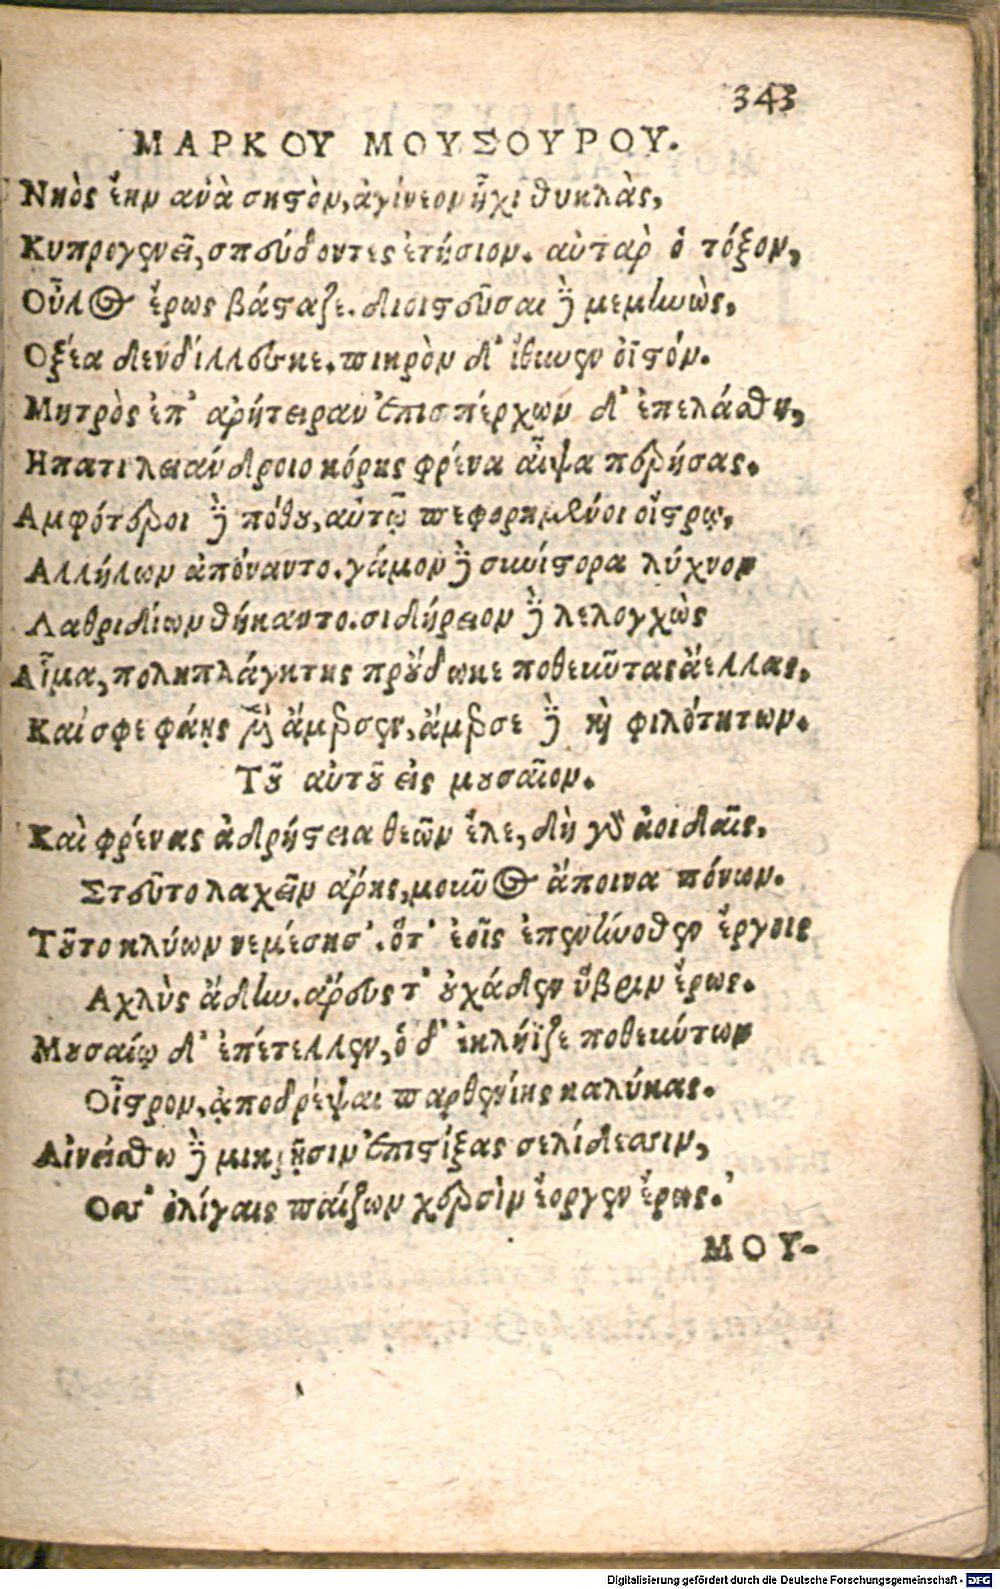 343
ΜΑΡΚΟΥ ΜΟΥΣΟΥΡΟΥ.
Νηὸς ἔην ἀνὰ σηστὸν, ἀγίνεον ἧχι θυηλὰς,
Κυπρογενεῖ, σπεύδοντες ἐτήσιον. αὐτὰρ ὁ τόξον,
Οὖλος ἔρως βάσταζε. διοιστεῦσαι δὲ μεμηνὼς,
Οξέα δενδίλλεσκε. πικρὸν δ' ἴθυνεν ὀϊστόν.
Μητρὸς ἐπ' ἀρήτειραν ἐπισπέρχων δ' ἐπελάσθη,
Ηπατι λειάνδροιο κόρης φρένα αἶψα περήσας.
Αμφότεροι δὲ πόθου, αὐτῷ πεφορημένοι οἴστρῳ,
Αλλήλων ἀπόναντο. γάμον δὲ συνίστορα λύχνον
Λαθριδίων θήκαντο. σιδήρειον δὲ λελογχὼς
Αἷμα, πολυπλάγητης προύδωκε ποθεῦντας ἄελλαις.
Καί σφε φάης μὲν ἄμερσεν, ἄμερσε δὲ καὶ φιλότητων.
Τοῦ αὐτοῦ εἰς μουσαῖον.
Καὶ φρένας ἀδρήστεια θεῶν ἕλε, δὴ γὰρ ἀοιδαῖς.
Στεῦτο λαχεῖν ἄρης, μούνος ἄποινα πόνων.
Τοῦτο κλύων νεμέσησ'. ὅτ' ἑοῖς ἐπενήνοθεν ἔργοις
Αχλὺς ἄδην. ἄρεως τ' οὐχάδεν ὕβριν ἔρως.
Μουσαίῳ δ' ἐπέτελλεν, ὁ δ' ἐκλήϊζε ποθεύντων
Οἶστρον, ἀποδρέψαι παρθενίης καλύκας.
Αἰνείσθω δὲ μικρῇσιν ἐπιστίξας σελίδεσσιν,
Οσσ' ὀλίγαις παίζων χερσὶν ἔοργεν ἔρως.
ΜΟΥ-
Digitalisierung gefördert durch die Deutsche Forschungsgemeinschaft - DFG